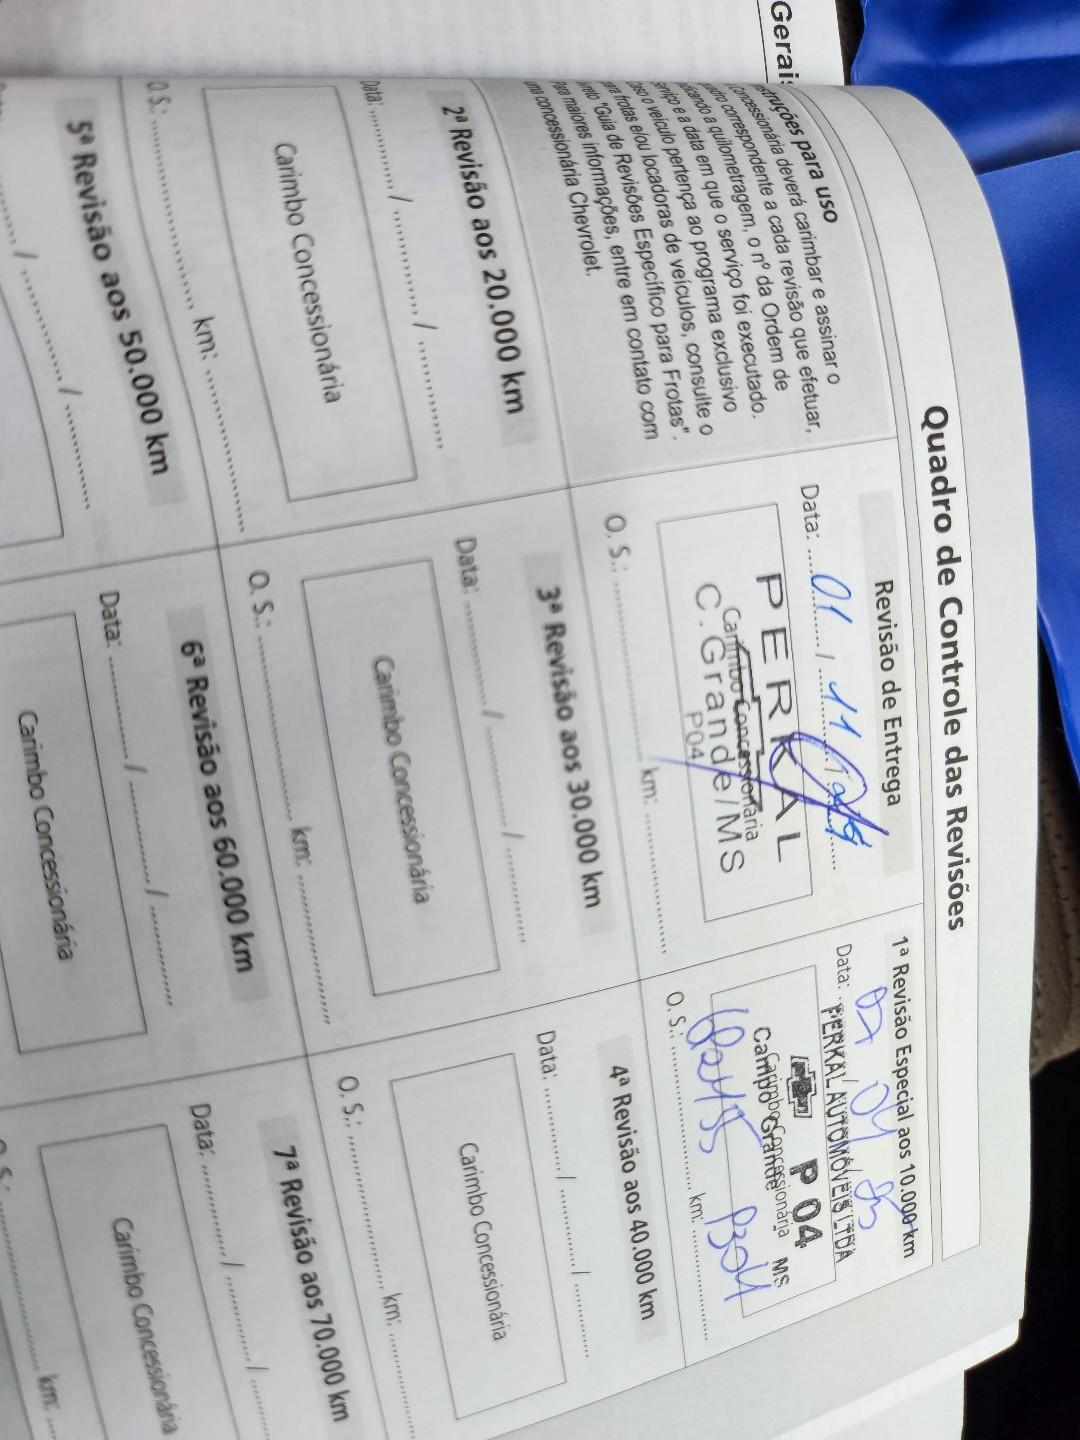 Gerais
Quadro de Controle das Revisões
Instruções para uso
Concessionária deverá carimbar e assinar o
quadro correspondente a cada revisão que efetuar,
indicando a quilometragem, o nº da Ordem de
serviço e a data em que o serviço foi executado.
Caso o veículo pertença ao programa exclusivo
para frotas e/ou locadoras de veículos, consulte o
livreto "Guia de Revisões Específico para Frotas".
Para maiores informações, entre em contato com
uma concessionária Chevrolet.
Revisão de Entrega
Data: 01 / 11 /
PERKAL
Carimbo Concessionária
C. Grande/MS
P04
O. S.: km:
1ª Revisão Especial aos 10.000 km
Data:
PERKAL AUTOMÓVEIS LTDA
P 04
Carimbo Concessionária
Campo Grande MS
O. S.: km:
2ª Revisão aos 20.000 km
Data: / /
Carimbo Concessionária
O. S.: km:
3ª Revisão aos 30.000 km
Data: / /
Carimbo Concessionária
O. S.: km:
4ª Revisão aos 40.000 km
Data: / /
Carimbo Concessionária
O. S.: km:
5ª Revisão aos 50.000 km
/ /
6ª Revisão aos 60.000 km
Data: / /
Carimbo Concessionária
7ª Revisão aos 70.000 km
Data: / /
Carimbo Concessionária
O. S.: km: